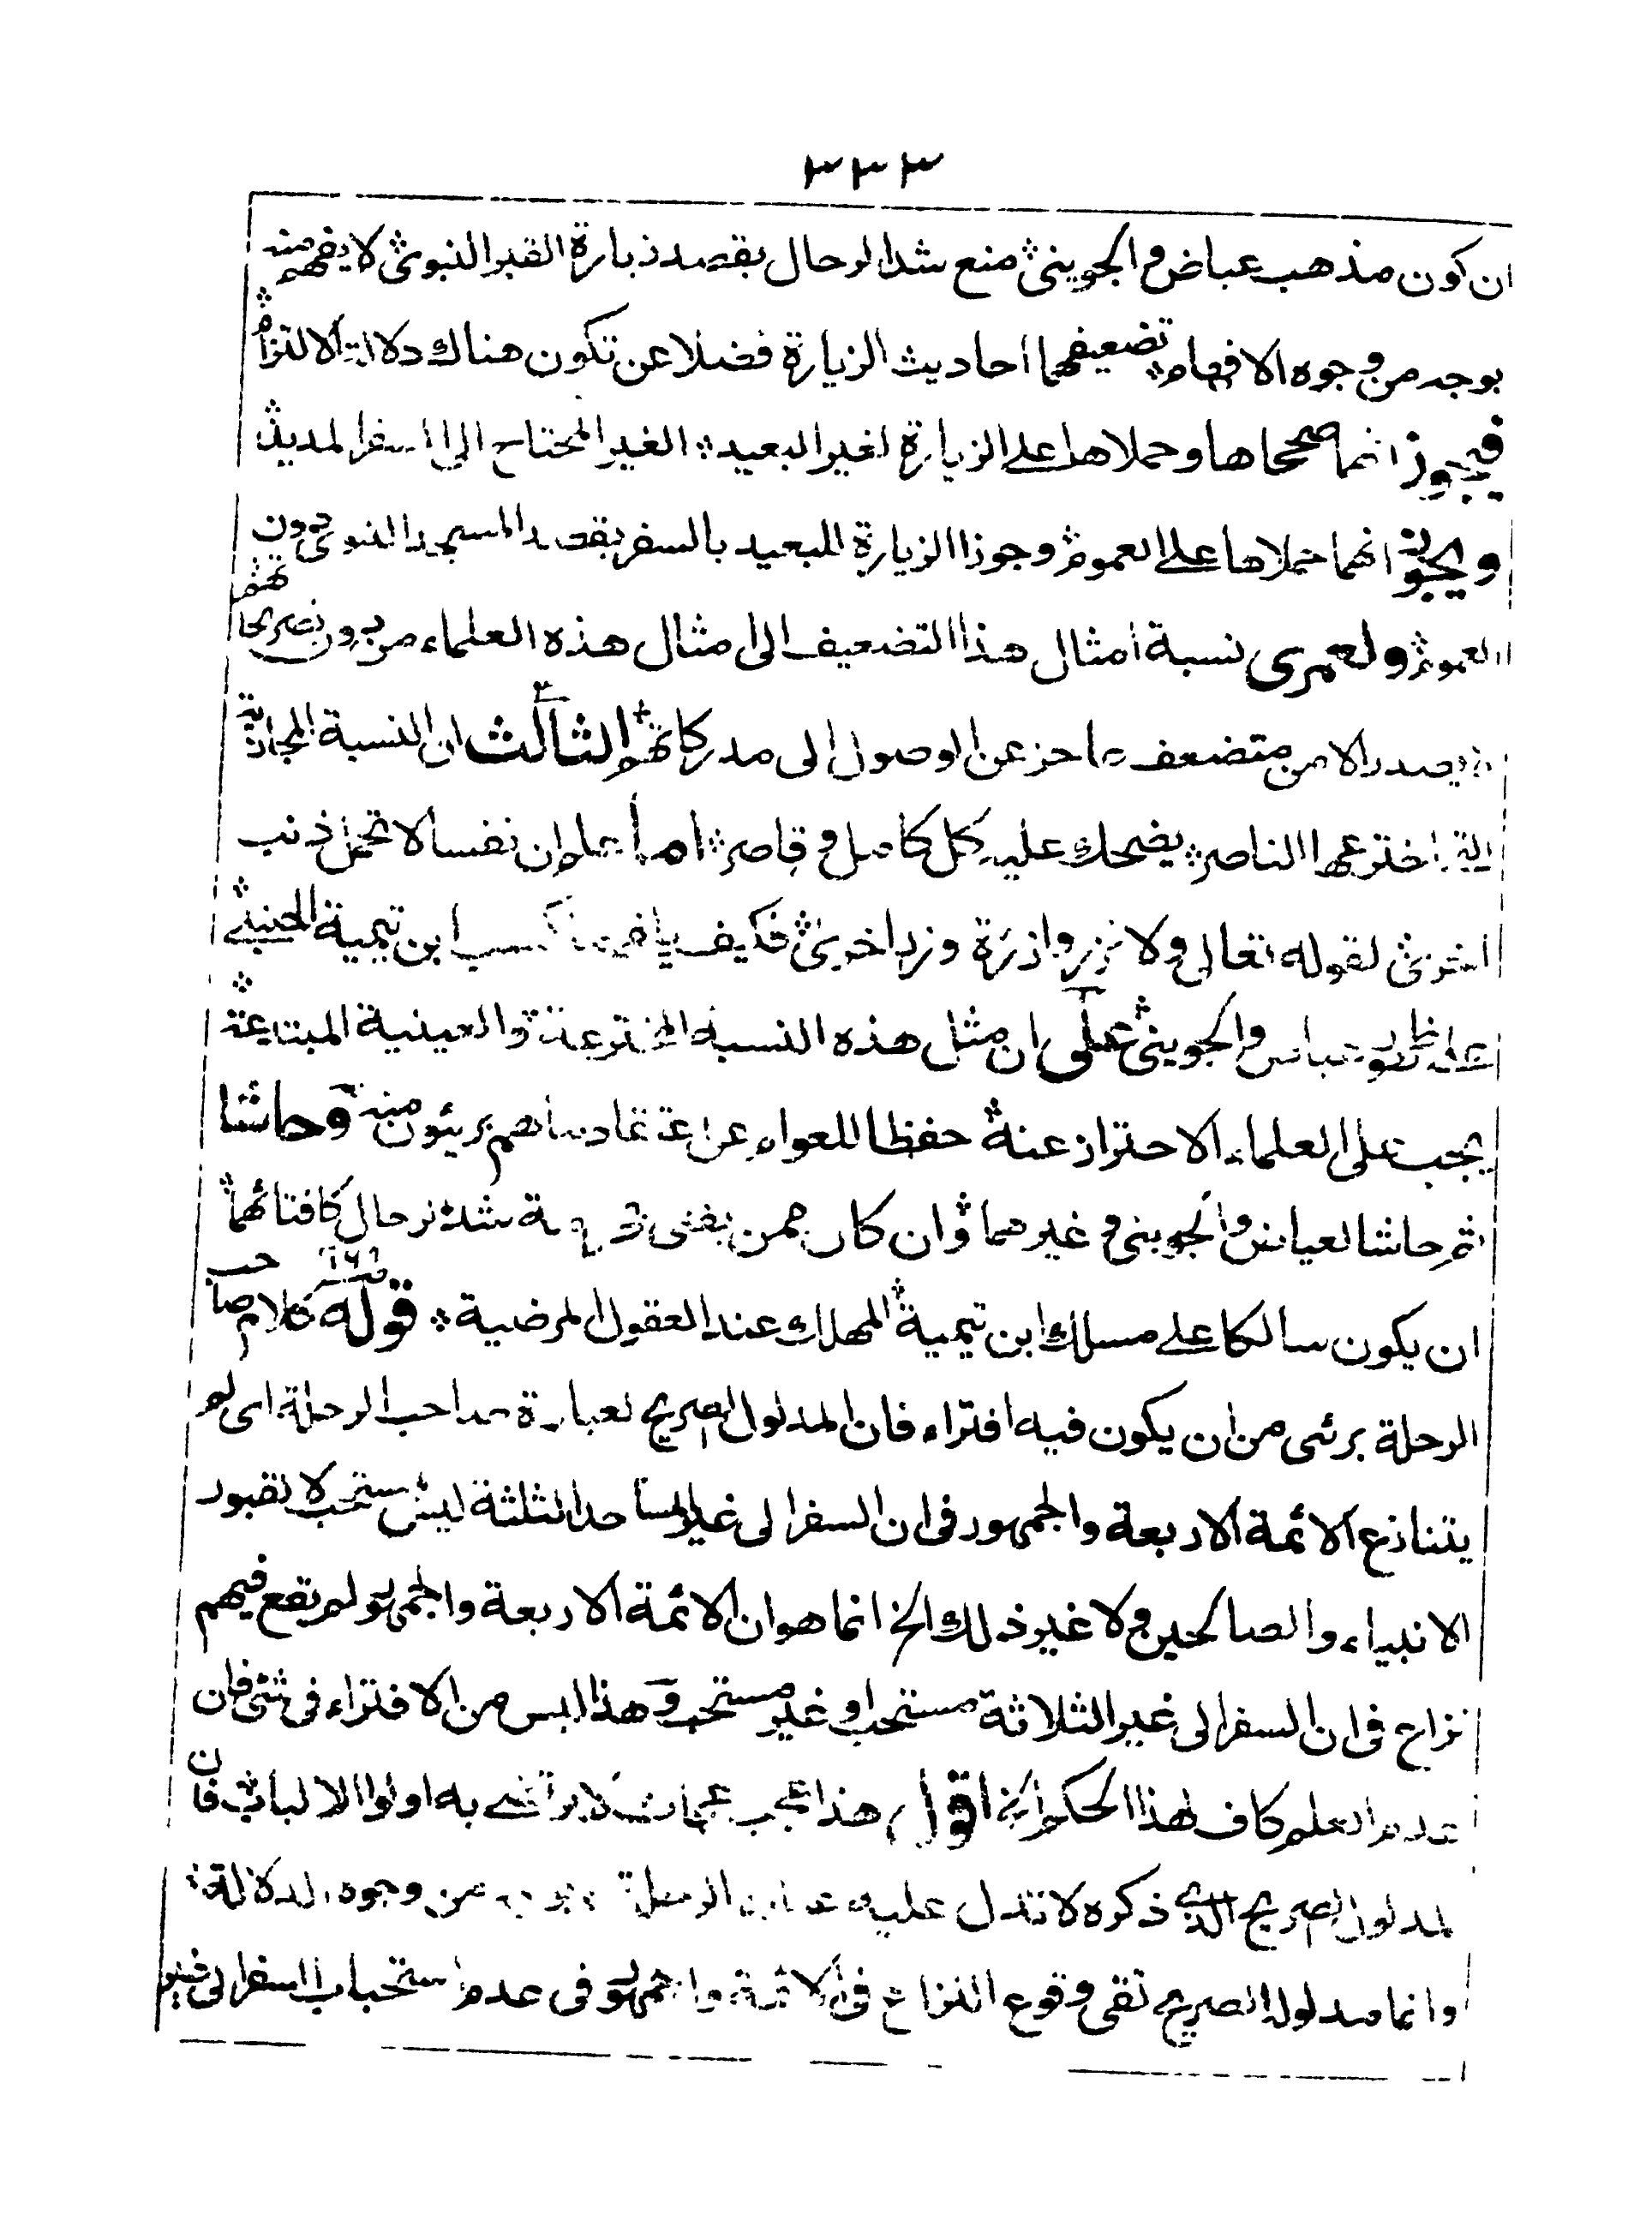 ٣٣٣
ان كون مذهب عياض والجوينى منع شد الرحال بقصد زيارة القبر النبوى لا يفهم منه
بوجه من وجوه الافهام تضعيفهما احاديث الزيارة فضلا عن تكون هناك دلالة الالتزام
فيجوز انهما صححاها وحملاها على الزيارة لغير البعيد الغير المحتاج الى السفر المديد
ويجوز انهما حملاها على العموم وجوزا الزيارة للبعيد بالسفر بقصد المسجد النبوى دون
العموم ولعمرى نسبة امثال هذا التضعيف الى امثال هذه العلماء من دون تصريحاتهم
لا يصدر الا من متضعف عاجز عن الوصول الى مدركاتهم الثالث ان النسبة المجازية
التى اخترعها الناصر يضحك عليه كل كامل وقاصر اما يعلم ان نفسا لا تحمل ذنب
اخرى لقوله تعالى ولا تزر وازرة وزر اخرى فكيف كسب ابن تيمية الحنبلى
على ظهور عياض والجوينى على ان مثل هذه النسبة المخترعة والعينية المبتدعة
يجب على العلماء الاحتراز عنه حفظا للعوام عن اعتقاد ما هم بريئون منه وحاشا
ثم حاشا لعياض والجوينى وغيرهما وان كان ممن يفتى شد الرحال كافتائهما
ان يكون سالكا على مسلك ابن تيمية المهلك عند العقول المرضية قوله ١٦١ كلام صاحب
الرحلة برئى من ان يكون فيه افتراء فان المدلول الصريح لعبارة صاحب الرحلة اى لم
يتنازع الائمة الاربعة والجمهور فى ان السفر الى غير المساجد الثلثة ليس بمستحب لا لقبور
الانبياء والصالحين ولا غير ذلك الخ انما هو ان الائمة الاربعة والجمهور لم يقع فيهم
نزاع فى ان السفر الى غير الثلاثة مستحب او غير مستحب وهذا ليس من الافتراء فى شئ فان
عدم العلم كاف لهذا الحكم الخ اقول هذا عجب عجاب لا يرتضى به اولوا الالباب فان
المدلول الصريح الذى ذكره لا تدل عليه عبارة الرحلة بوجه من وجوه الدلالة
وانما مدلوله الصريح نفى وقوع النزاع فى الائمة والجمهور فى عدم استحباب السفر الى غير